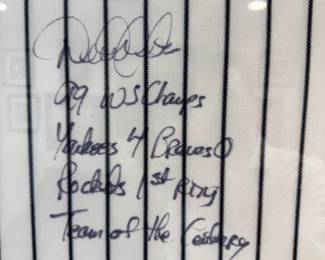 99 WS Champs
Yankees 4 Braves 0
Rockets 1st Ring
Team of the Century